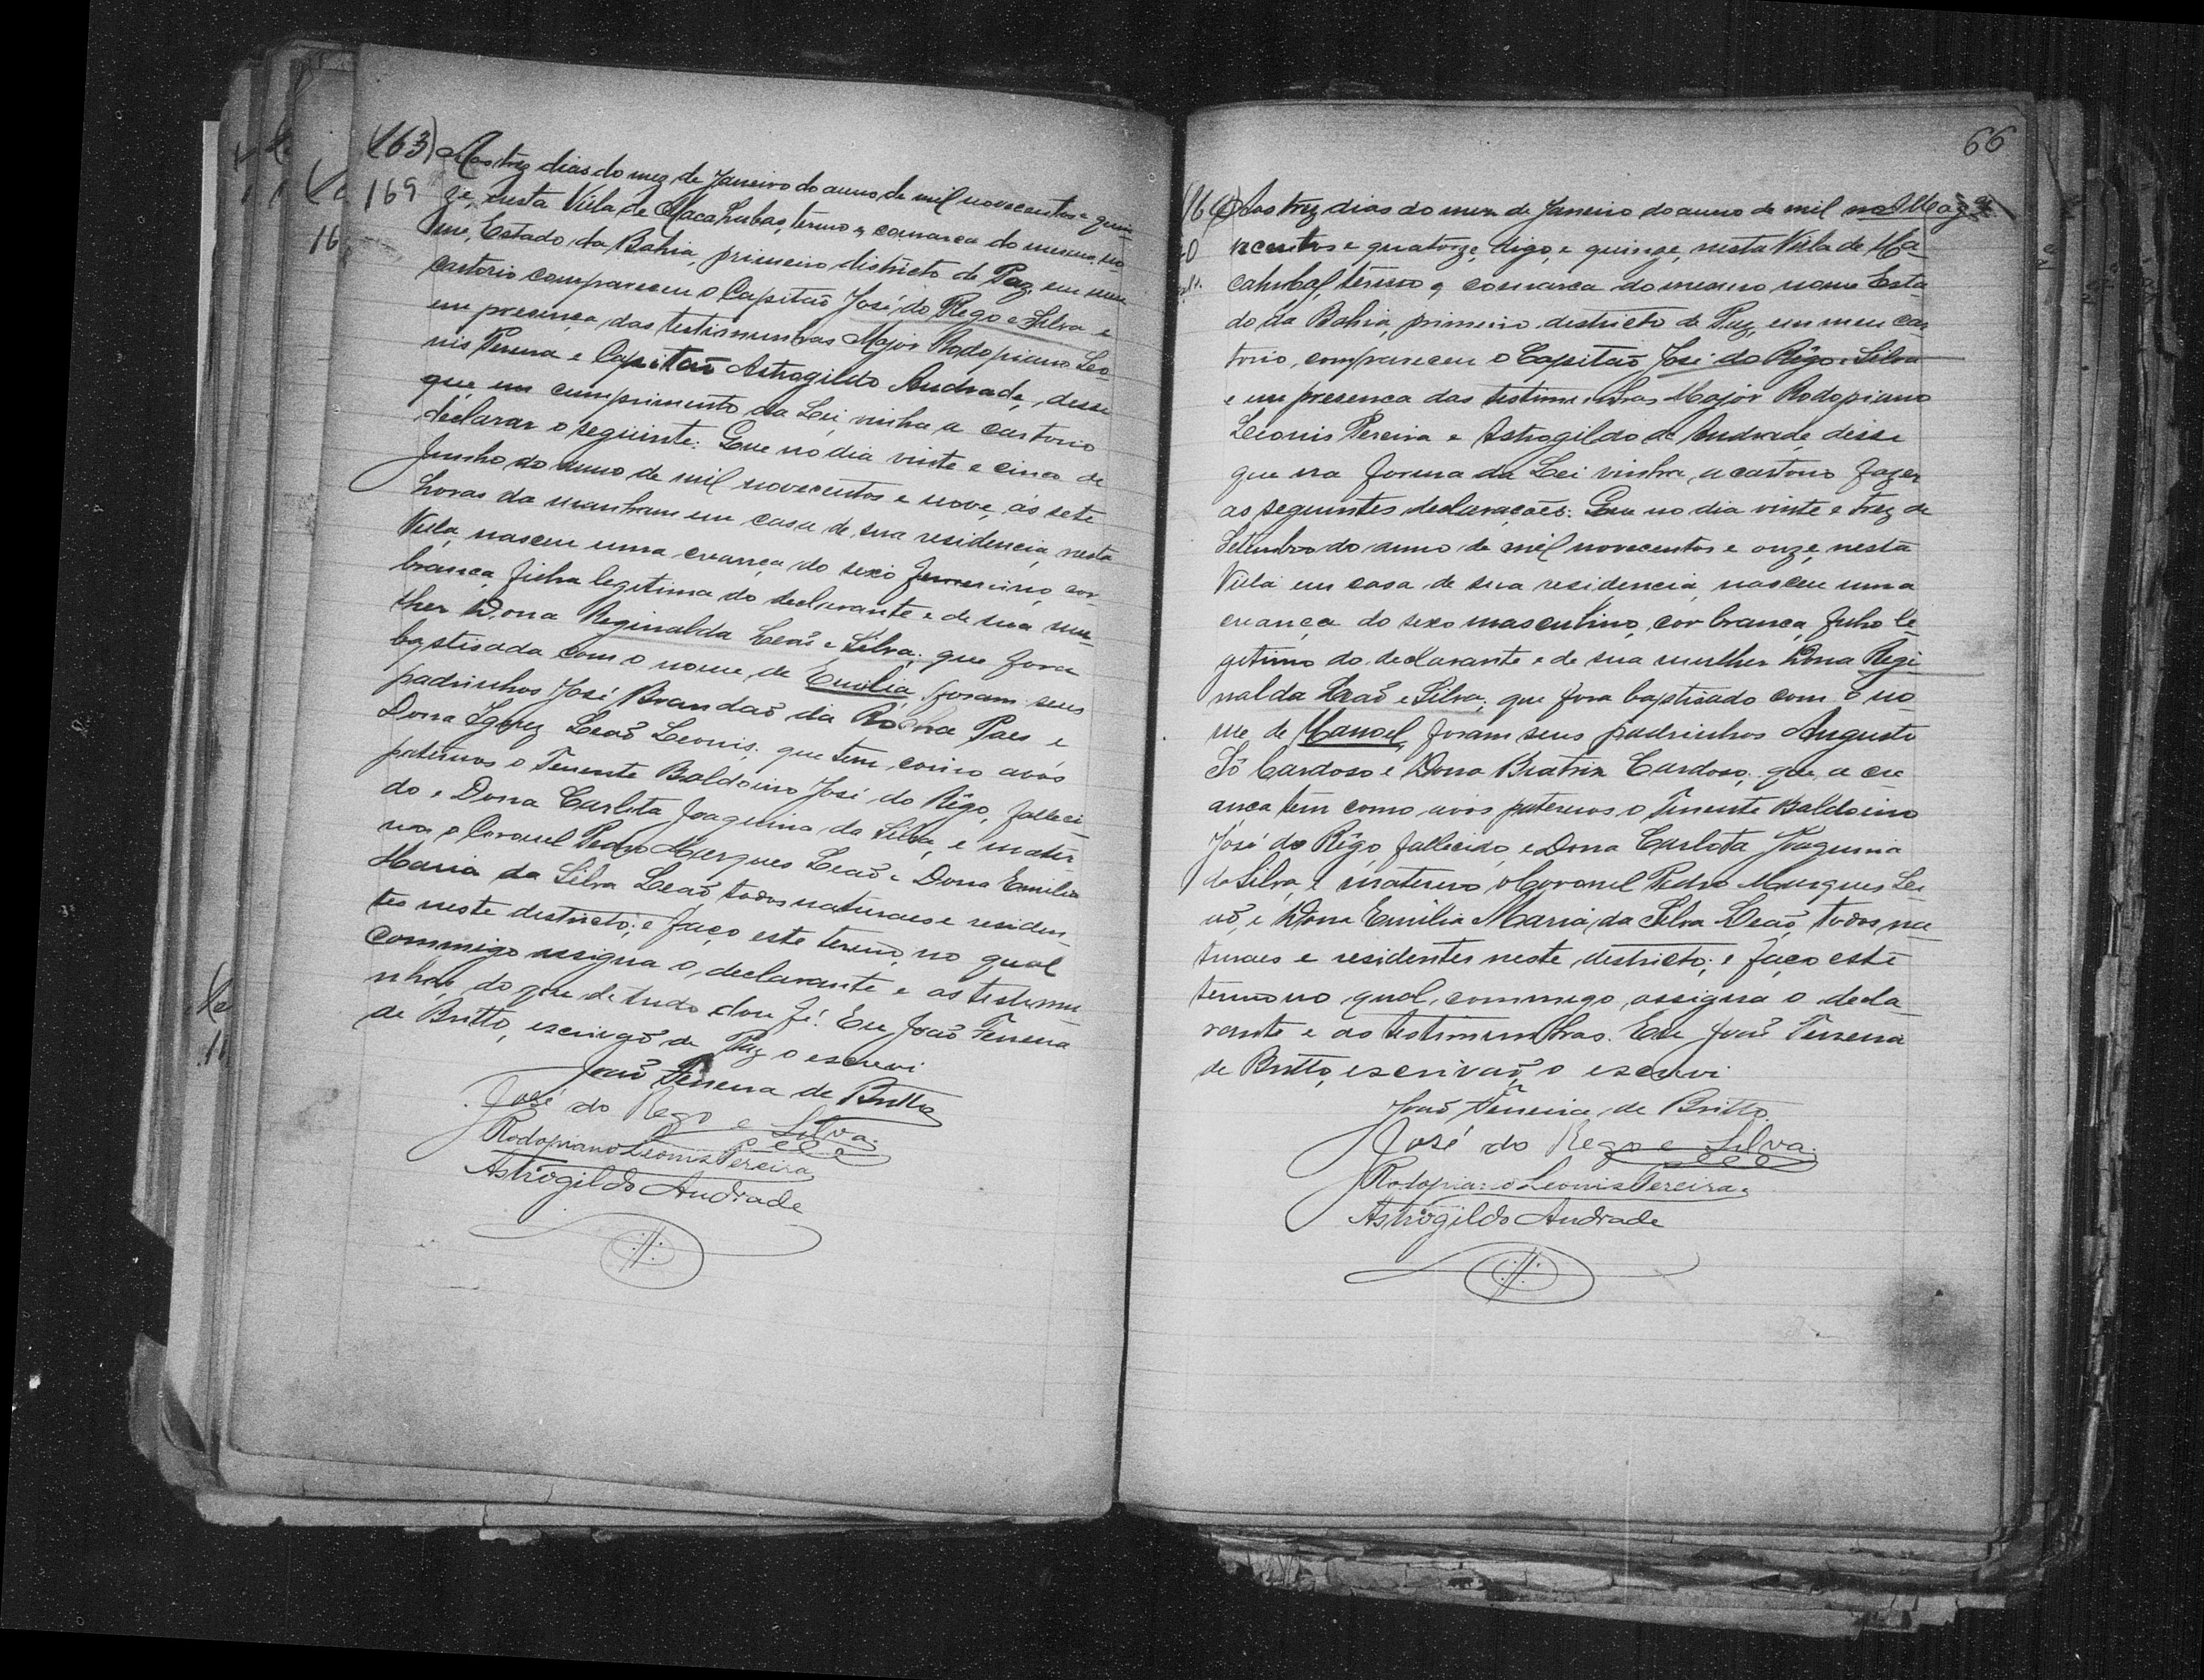 (163)
169
Aos trez dias do mez de Janeiro do anno de mil novecentos e quin-
ze, nesta Villa de Macahubas, termo e comarca do mesmo no-
me, Estado da Bahia, primeiro districto de Paz, em meu
cartorio compareceu o Capitão José do Rego e Silva e
em presença das testimunhas Major Rodopiano Leo-
nis Pereira e Capitão Astrogildo Andrade, disse
que em cumprimento da Lei vinha a cartorio
declarar o seguinte: Que no dia vinte e cinco de
Junho do anno de mil novecentos e nove, ás sete
horas da manham em casa de sua residencia, nesta
Villa, nasceu uma creança do sexo femenino, cor
branca, filha legitima do declarante e de sua mu-
lher Dona Reginalda Leão e Silva; que fora
baptisada com o nome de Emilia, foram seus
padrinhos José Brandão da Rocha Paes e
Dona Ignez Leão Leonis; que tem como avós
paternos o Tenente Baldoino José do Rêgo, falleci-
do e Dona Carlota Joaquina da Silva, e mater-
nos o Coronel Pedro Marques Leão e Dona Emilia
Maria da Silva Leão, todos naturaes e residen-
tes neste districto; e faço este termo, no qual
commigo assigna o declarante e as testemu-
nhas, do que de tudo dou fé. Eu João Ferreira
de Britto, escrivão de Paz o escrevi
João Ferreira de Britto
José do Rego e Silva.
Rodopiano Leonis Pereira
Astrogildo Andrade
66
Aos trez dias do mez de Janeiro do anno de mil no
vecentos e quatorze, digo, e quinze, nesta Villa de Ma-
cahubas, termo e comarca do mesmo nome Esta-
do da Bahia, primeiro districto de Paz, em meu car
torio, compareceu o Capitão José do Rêgo e Silva
e em presenca das testimunhas Major Rodopiano
Leonis Pereira e Astrogildo de Andrade, disse
que na forma da Lei vinha, a cartorio fazer
as seguintes declarações: Que no dia vinte e trez de
Setembro do anno de mil novecentos e onze, nesta
Villa em casa de sua residencia, nasceu uma
creança do sexo masculino, cor branca, filho le-
gitimo do declarante e de sua mulher Dona Regi-
nalda Leão e Silva; que fora baptisado com o no-
me de Manoel, foram seus padrinhos Augusto
Sô Cardoso e Dona Beatriz Cardoso; que a cre
ança tem como avós paternos o Tenente Baldoino
José do Rêgo, fallecido, e Dona Carlota Joaquina
da Silva, e materno o Coronel Pedro Marques Le-
ão, e Dona Emilia Maria da Silva Leão, todos na-
turaes e residentes neste districto; e faço este
termo no qual, commigo assigna o decla-
rante e as testimunhas. Eu João Ferreira
de Britto, escrivão o escrevi
João Ferreira de Britto.
José do Rego e Silva.
Rodopiano Leonis Pereira
Astrogildo Andrade